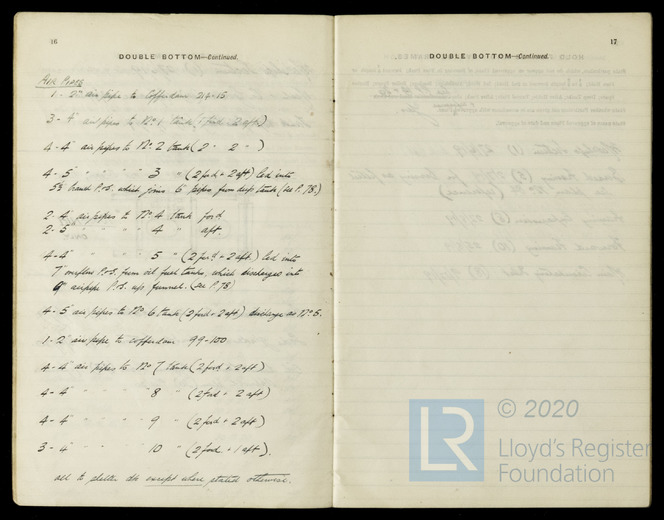 16
DOUBLE BOTTOM—Continued.
Air Pipes
1 - 2" air pipe to Cofferdam 214-15
3 - 4" air pipes to No. 1 tank (1 ford 2 aft)
4 - 4" air pipes to No. 2 tank (2 " 2 " )
4 - 5 " " " 3 " (2 ford + 2 aft) led into
5½ branch P.&S. which joins to pipes from deep tank (see P. 78)
2 - 4 air pipes to No. 4 tank ford
2 - 5 " " 4 " aft.
4 - 4" " " 5 " (2 ford + 2 aft) led into
7" overflow P.&S. from oil fuel tanks, which discharges into
9" airpipe P.&S. up funnel. (see P. 78)
4 - 5 air pipes to No. 6 tank (2 ford + 2 aft) discharge as No. 5.
1 - 2" air pipe to cofferdam 99-100
4 - 4" air pipes to No. 7 tank (2 ford + 2 aft)
4 - 4" " " " 8 " (2 ford + 2 aft)
4 - 4 " " " 9 " (2 ford + 2 aft)
3 - 4" " " " 10 " (2 ford + 1 aft).
all to shelter dk except where stated otherwise.
17
DOUBLE BOTTOM—Continued.
LR
© 2020
Lloyd's Register
Foundation